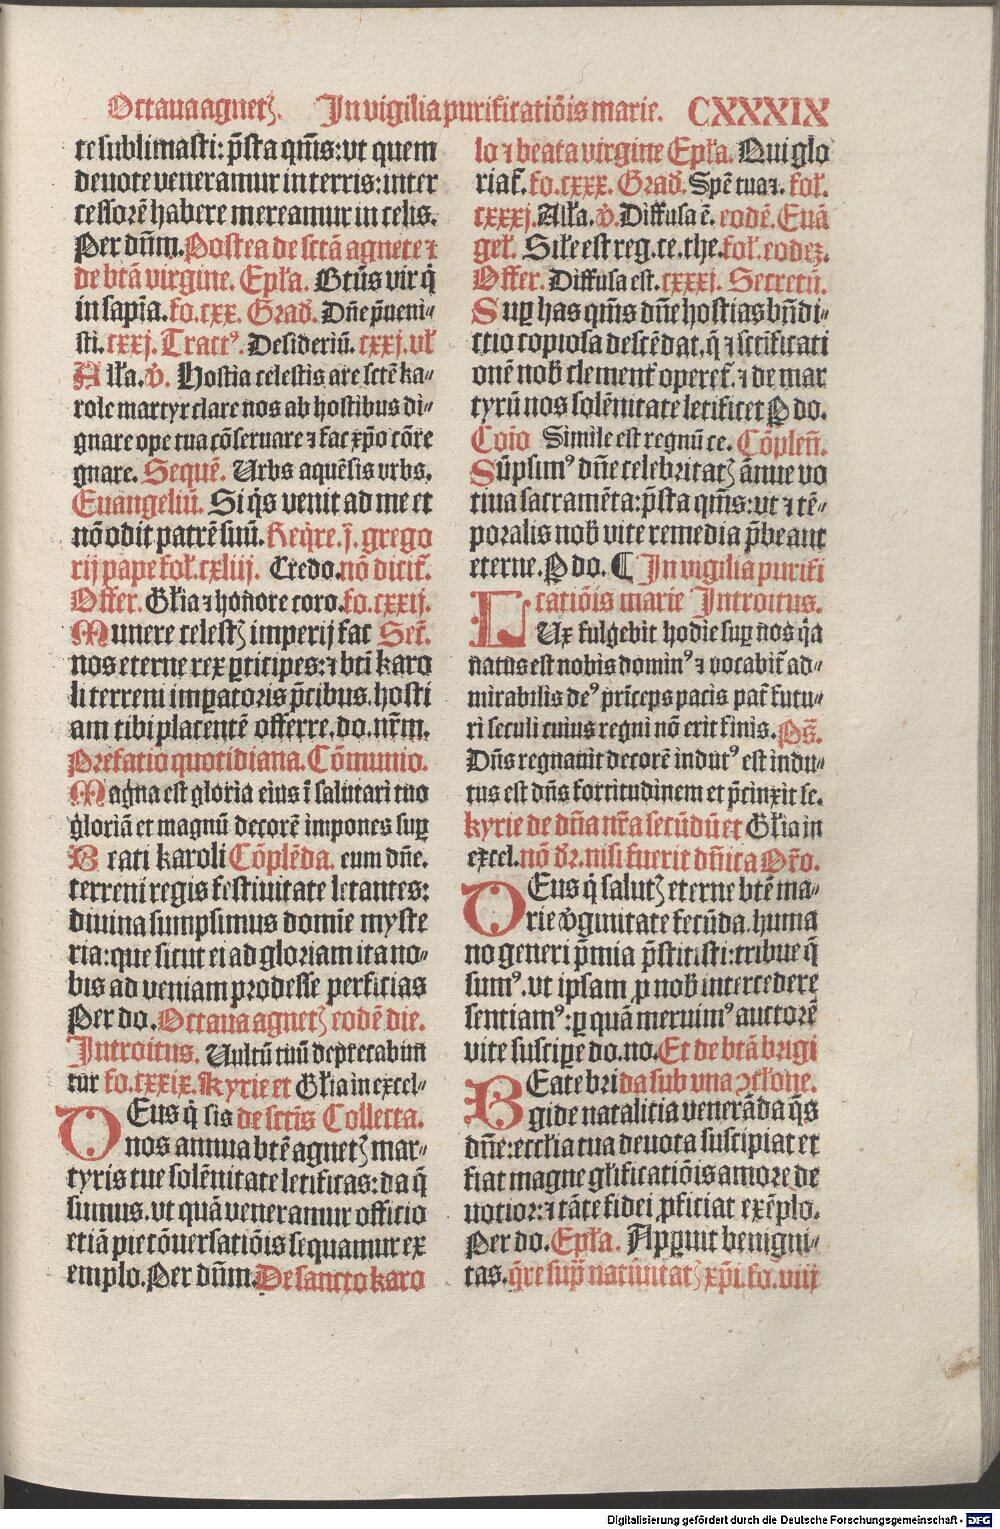 Octaua agnetꝫ. In vigilia purificatiõis marie. CXXXIX
te sublimasti: p̃sta q̃ms: vt quem
deuote veneramur in terris: inter
cessorẽ habere mereamur in celis.
Per dñm. Postea de sctã agnete ⁊
de btã virgine. Ep̃ła. Btũs vir q̃
in sapĩa. fo. cxx. Grad̃. Dñe p̃ueni⸗
sti. cxxj. Tractꝰ. Desideriũ. cxxj. vł
Ałła. v̾. Hostia celestis are sctẽ ka⸗
role martyr clare nos ab hostibus di⸗
gnare ope tua cõseruare ⁊ fac xp̃o cõre
gnare. Sequẽ. Urbs aquẽsis vrbs.
Euangeliũ. Si q̃s venit ad me et
nõ odit patrẽ suũ. Req̃re. j̃. grego
rij pape foł. cxliij. Credo. nõ dicit̃.
Offer. Głia ⁊ honore coro. fo. cxxij.
Munere celestꝫ imperij fac Secr̃.
nos eterne rex ꝑticipes: ⁊ bt̃i karo
li terreni imꝑatoris p̃cibus. hosti
am tibi placentẽ offerre. do. nr̃m.
Prefatio quotidiana. Cõmunio.
Magna est gloria eius ĩ salutari tuo
gloriã et magnũ decorẽ impones suꝑ
Beati karoli Cõplẽda. eum dñe.
terreni regis festiuitate letantes:
diuina sumpsimus domĩe myste
ria: que sicut ei ad gloriam ita no⸗
bis ad veniam prodesse perficias
Per do. Octaua agnetꝫ eodẽ die.
Introitus. Uultũ tuũ deprecabun
tur fo. cxxix. Kyrie et Głia in excel⸗
DEus q̃ sis de sctĩs Collecta.
nos annua btẽ agnetꝫ mar⸗
tyris tue solẽnitate letificas: da q̃
sumus. vt quã veneramur officio
etiã pie cõuersatiõis sequamur ex
emplo. Per dñm. De sancto karo
lo ⁊ beata virgine Ep̃ła. Qui glo
riat̃. fo. cxxx. Grad̃. Spẽ tua⁊. foł.
cxxxj. Ałła. v̾. Diffusa ẽ. eodẽ. Euã
geł. Siłe est reg. ce. the. foł. eodeꝫ.
Offer. Diffusa est. cxxxj. Secretũ.
Suꝑ has q̃ms dñe hostias bñdi⸗
ctio copiosa descẽdat. q̃ ⁊ sctĩficati
onẽ nob̃ clement̃ operet̃. ⁊ de mar
tyrũ nos solẽnitate letificet P do.
Coĩo Simile est regnũ ce. Cõpleñ.
Sũpsimꝰ dñe celebritatꝫ ãnue vo
tiua sacramẽta: p̃sta q̃ms: vt ⁊ tẽ⸗
poralis nob̃ vite remedia p̃beant
eterne. P do. ¶ In vigilia purifi
catiõis marie Introitus.
LUx fulgebit hodie suꝑ nos q̃a
natus est nobis dominꝰ ⁊ vocabit̃ ad⸗
mirabilis deꝰ prĩceps pacis pat̃ futu⸗
ri seculi cuius regni nõ erit finis. Ps̃.
Dñs regnauit decorẽ indutꝰ est indu⸗
tus est dñs fortitudinem et p̃cinxit se.
kyrie de dña nr̃a secũdũ et Głia in
excel. nõ dr̃. nisi fuerit dñica Or̃o.
DEus q̃ salutꝫ eterne btẽ ma⸗
rie v̾ginitate fecũda. huma
no generi p̃mia p̃stitisti: tribue q̃
sumꝰ. vt ipsam ꝓ nob̃ intercedere
sentiamꝰ: ꝑ quã meruimꝰ auctorẽ
vite suscipe do. no. Et de btã brigi
BEate bri da sub vna ꝯclone.
gide natalitia venerãda q̃s
dñe: eccłia tua deuota suscipiat et
fiat magne głificatiõis amore de
uotior: ⁊ tãte fidei ꝓficiat exẽplo.
Per do. Ep̃ła. Apꝑuit benigni⸗
tas. q̃re sup̃ natiuitatꝫ xp̃i. fo. viij
Digitalisierung gefördert durch die Deutsche Forschungsgemeinschaft - DFG